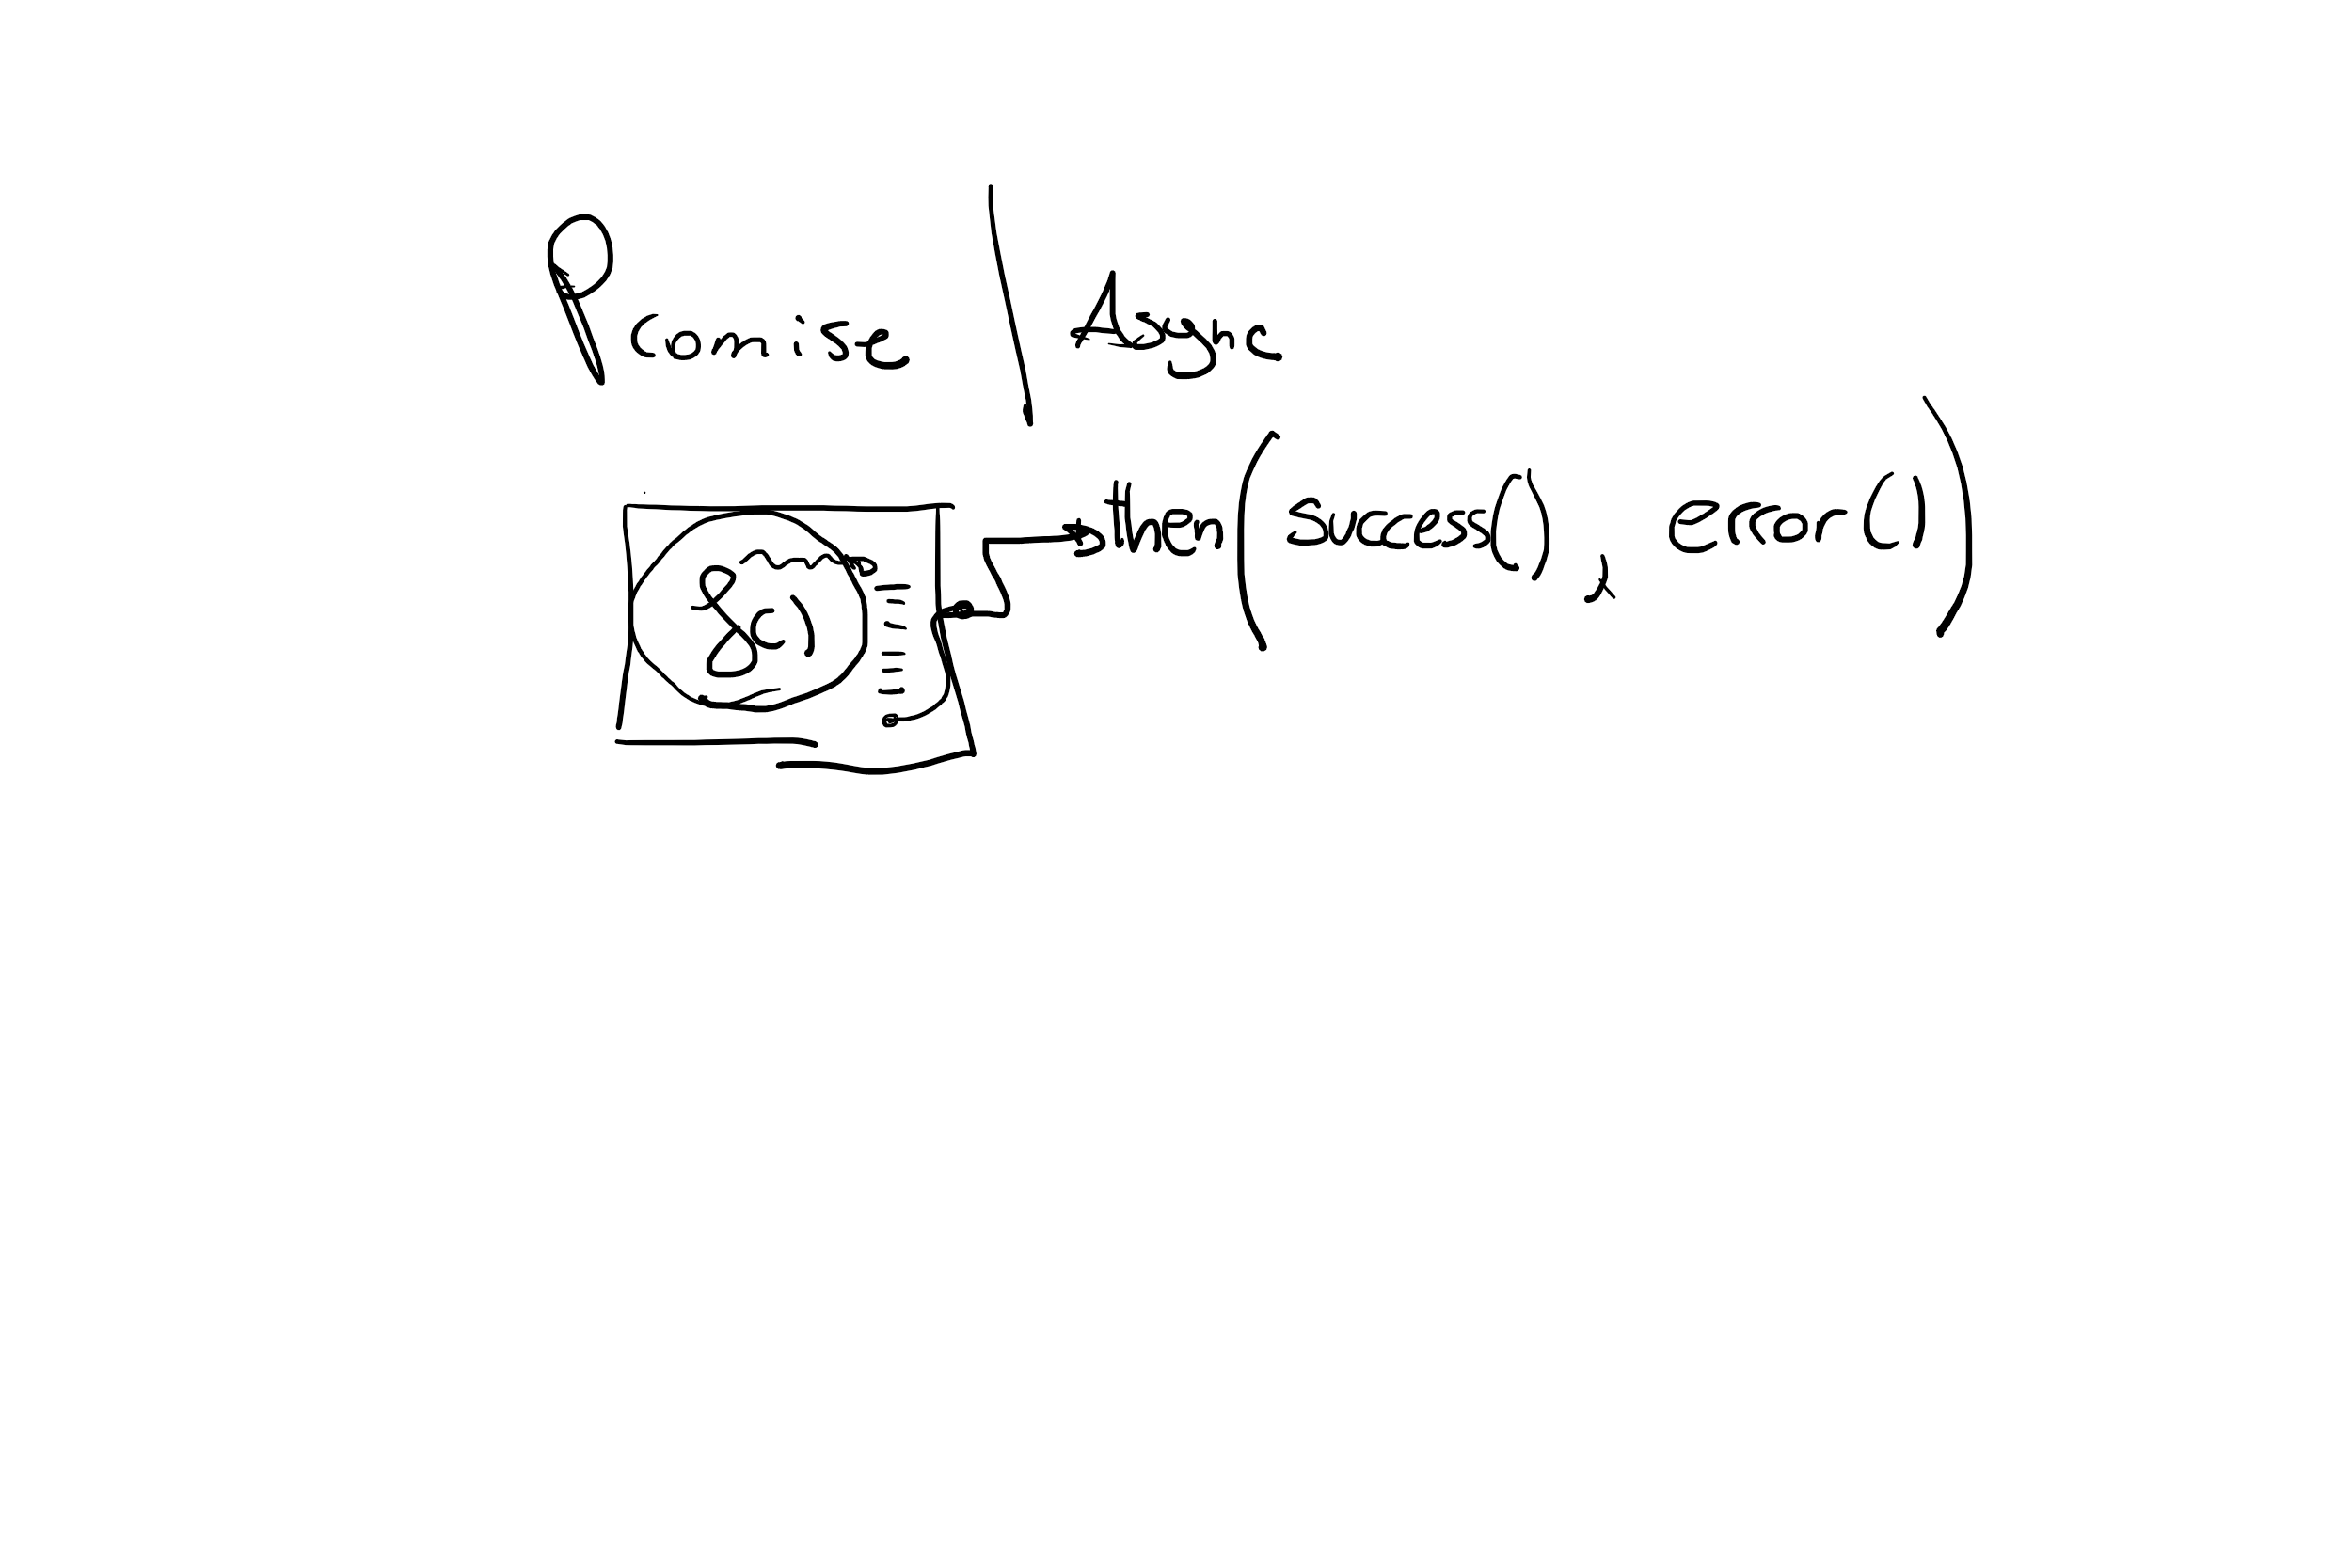 Promise / Async
then(success(), error())
f()